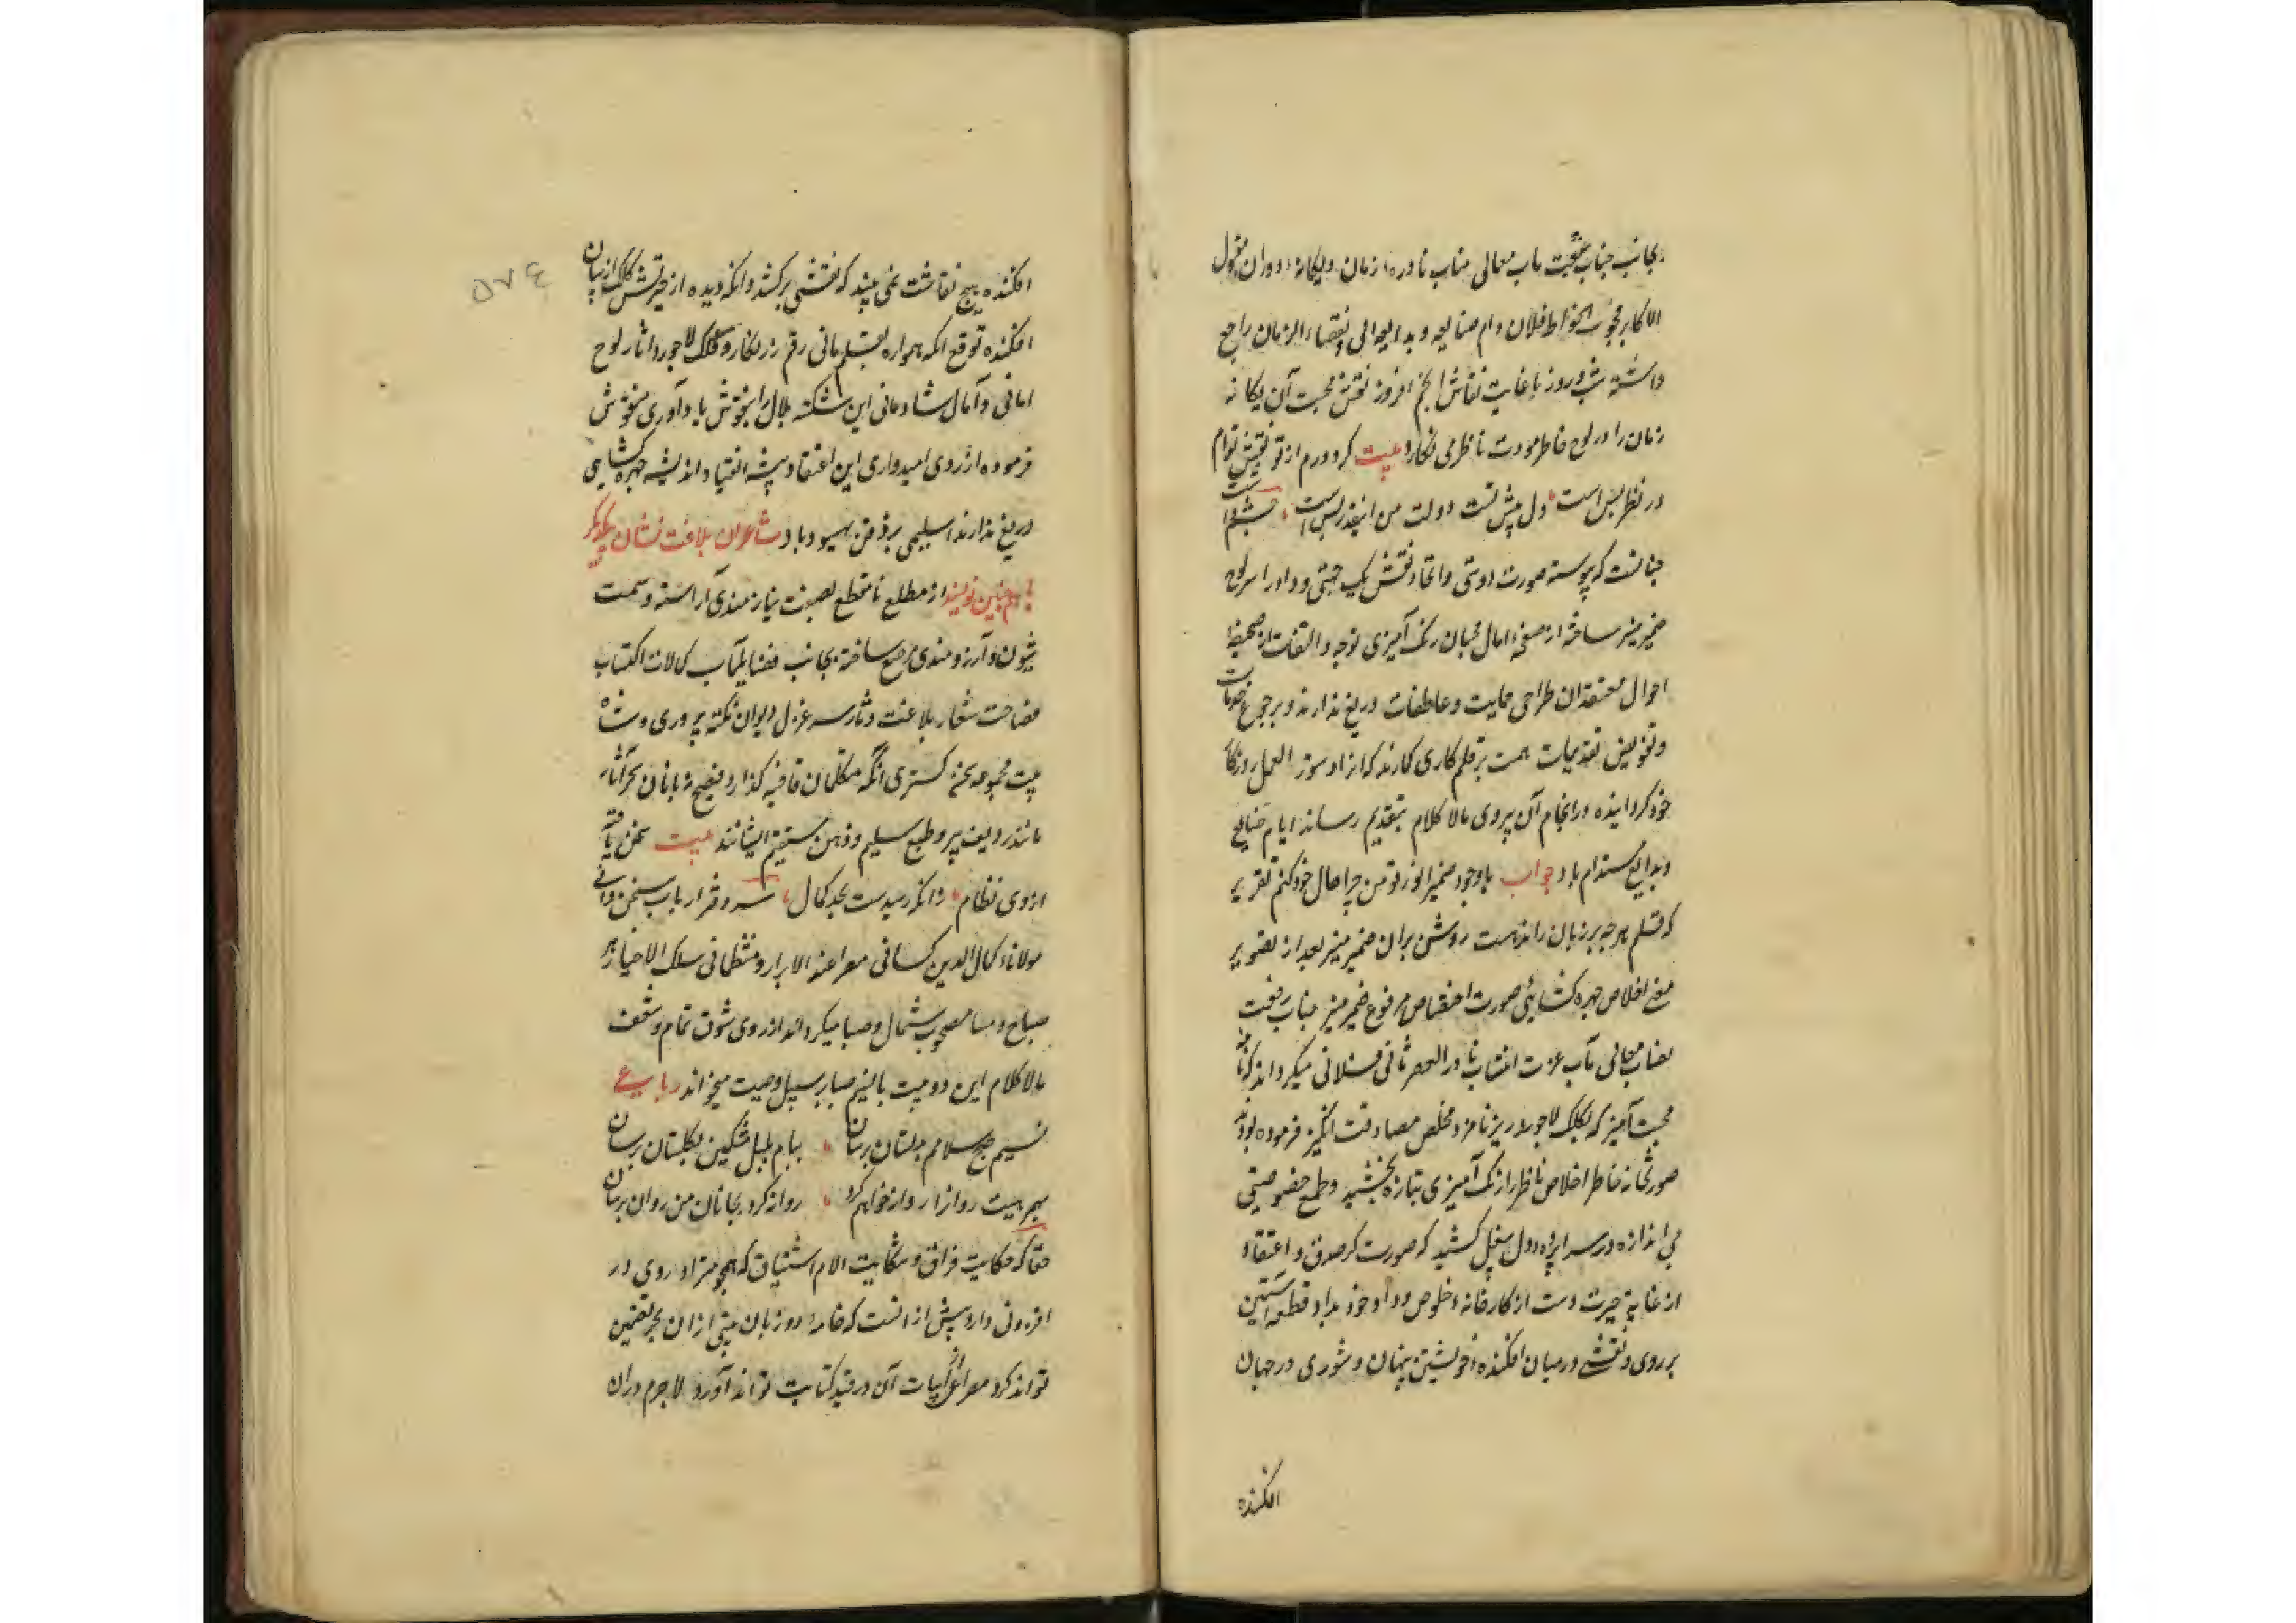 بجانب جناب محبت ماب معالی مناب نادره زمان و یگانه دوران مقبول
الاکابر محبوب الخواطر فلان دام صنایعه و بدایعه الی انقضاء الزمان راجع
داشته شب و روز باغایت نقاش انجم افروز نقش محبت آن یگانه
زمان را در لوح خاطر مودت ناظر می نگارد بیت کرد ورم از تو نقش توام
در نظر بس است دل پیش تست دولت من اینقدر بس است چشم داشت
چنانست که پیوسته صورت دوستی و اتحاد و نقش یک جهتی و وداد را بر لوح
ضمیر منیر ساخته از صفحه امال محبان رنک آمیزی توجه و التفات از صحیفه
احوال معتقدان طراحی حمایت و عاطفت دریغ ندارند و برجوع خدمات
و تفویض تقدیمات همت بر قلم کاری کمارند که انرا دستور العمل روزگار
خود کردانیده در انجام آن پروی مالا کلام بتقدیم رساند ایام صنایع
و بدایع مستدام باد جواب با وجود ضمیر انور تو من چرا حال خود کنم تقریر
که قلم هر چه بر زبان راندست روشن بران ضمیر منیر بعد از تصویر
صفحه اخلاص چهره کشایی صورت اختصاص مرفوع ضمیر منیر جناب رفعت
نصاب معالی مآب عزت انتساب نادر العصر ثانی فلانی میکرداند که نامه
محبت آمیز که بکلک لاجورد ریز نامزد مخلص مصادقت انگیز فرموده بودند
صورتخانه خاطر اخلاص ناظر را رنک آمیزی تازه بخشید و طرح خصوصیتی
بی اندازه در سراپرده دل سنجل کشید که صورت کر صدق و اعتقاد
از غایة حیرت دست از کارخانه خلوص و وداد خود بداد و قطعه آستین
بر روی و نقشی در میان افکنده خویشتن پنهان و شوری در جهان
افکنده
٥٧٤
افکنده هیچ نقاشت نمی بیند که نقشی برکشد وانکه دیده از حیرتش کلک از بنان
افکنده توقع انکه همواره بقلم مانی رقم زرنگار و کلک لاجورد اثار لوح
امانی و آمال شادمانی این شکسته بلال را بنقوش یاد آوری منقوش
فرموده از روی امیدواری این اعتقاد پیشه انقیاد اندیشه چهره کشایی
دریغ ندارند اسلیمی بر وفق بهبود باد شاعران بلاغت نشان بیکدیگر
هم چنین نویسند از مطلع تا مقطع بصفت نیازمندی آراسته و سمت
شیون و آرزومندی مرصع ساخته بجانب فضایلمآب کمالات اکتساب
فصاحت شعار بلاغت دثار سر غزل دیوان نکته پروری و شاه
بیت مجموعه سخن کستری انکه متکلمان قافیه کذار و فصیح زبانان سحر آثار
مانند ردیف پیرو طبع سلیم و ذهن مستقیم ایشانند بیت سخن یافته
از وی نظام زانکه رسیدست بحد کمال سر دفتر ارباب سخن دانی
مولانا کمال الدین کسانی مع راعنه الابرار و منتظمانی سلک الاخیار هر
صباح و مسا مصحوب شمال و صبا میکرداند از روی شوق تمام و شعف
مالا کلام این دو بیت با نسیم صبا بر سبیل وصیت میخواند رباعی
نسیم صبح سلامم بدلستان برسان پیام بلبل مشکین بگلستان برسان
بهر بیت روانرا روانه خواهم کرد روانه کرد بجانان من روان برسان
حقا که حکایت فراق و شکایت الام اشتیاق که همچو مترادف روی در
افزونی دارد پیش از انست که خامه دو زبان بیتی از ان بحر تضمین
تواند کرد مصراعی از ابیات آن در قید کتابت تواند آورد لاجرم دران